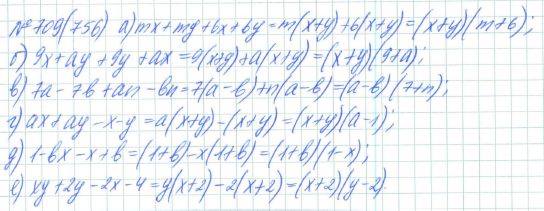 № 709(756) а) mx+my+6x+6y=m(x+y)+6(x+y)=(x+y)(m+6);
б) 9x+ay+9y+ax=9(x+y)+a(x+y)=(x+y)(9+a);
в) 7a-7b+an-bn=7(a-b)+n(a-b)=(a-b)(7+n);
г) ax+ay-x-y=a(x+y)-(x+y)=(x+y)(a-1);
д) 1-bx-x+b=(1+b)-x(1+b)=(1+b)(1-x);
е) xy+2y-2x-4=y(x+2)-2(x+2)=(x+2)(y-2).